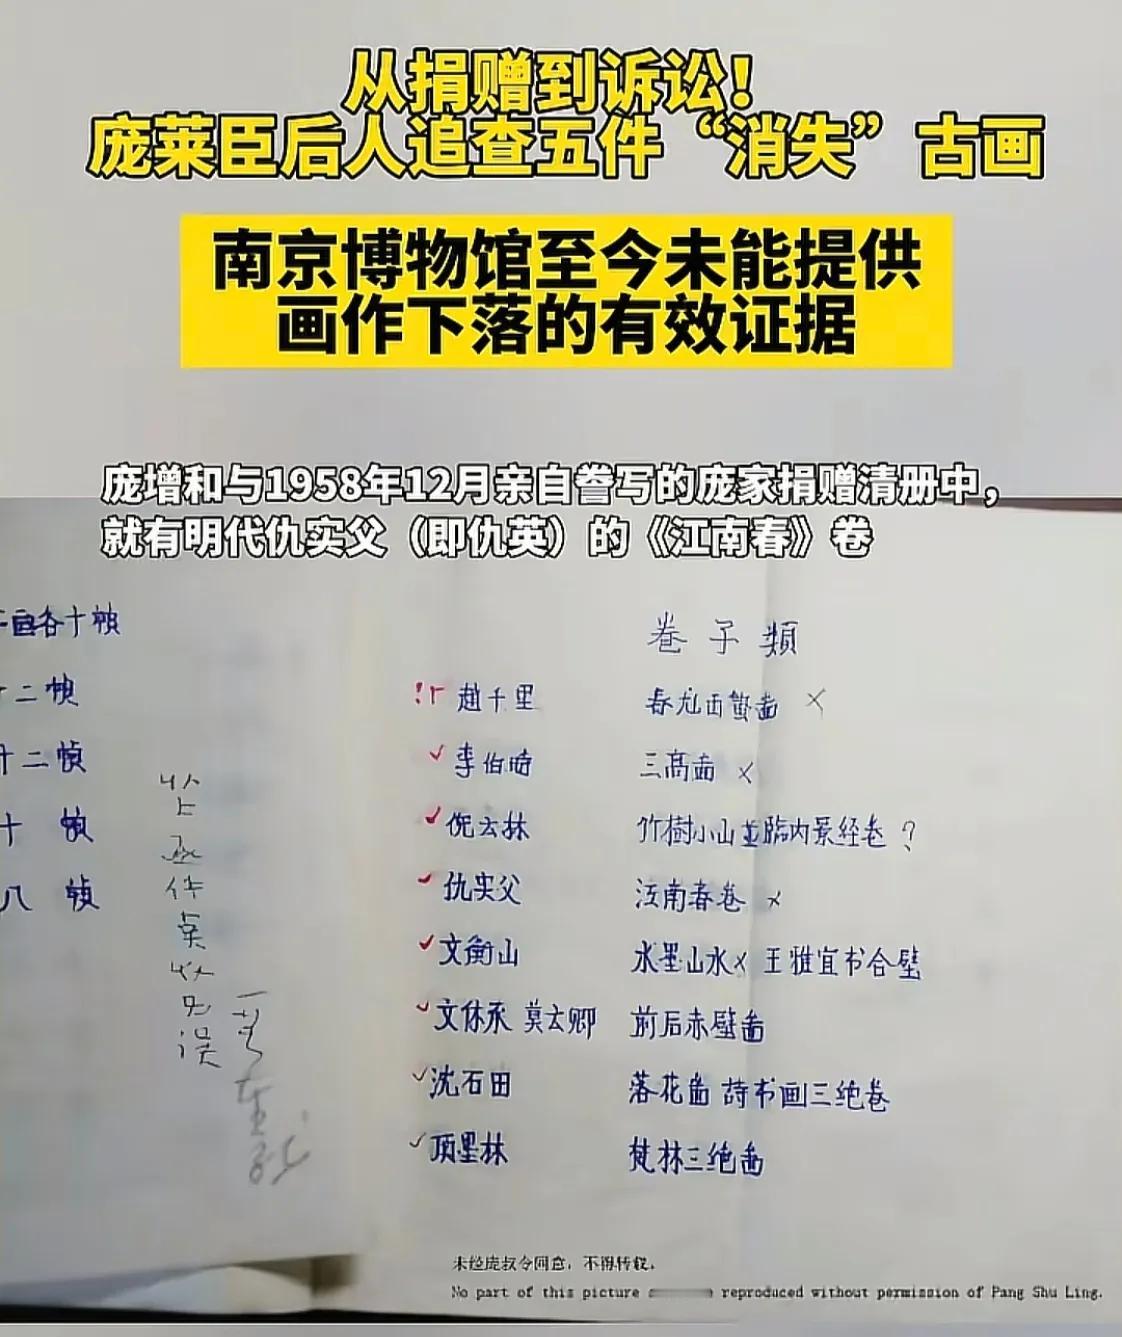 从捐赠到诉讼！
庞莱臣后人追查五件“消失”古画
南京博物馆至今未能提供
画作下落的有效证据
庞增和与1958年12月亲自誊写的庞家捐赠清册中，
就有明代仇实父（即仇英）的《江南春》卷
画各十帧
十二帧
廿二帧
十 帧
八 帧
卷子類
趙千里 春龙出蟄啚 ×
李伯時 三高啚 ×
倪云林 竹樹小山並臨内景经卷 ?
仇实父 江南春卷 ×
文衡山 水墨山水× 王雅宜书合壁
文休承 莫云卿 前后赤壁啚
沈石田 落花啚 詩书画三绝卷
项墨林 梵林三绝啚
未经庞叔令同意，不得转载。
No part of this picture reproduced without permission of Pang Shu Ling.